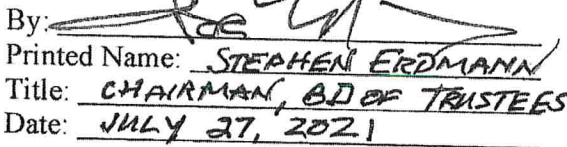 By:
Printed Name: STEPHEN ERDMANN
Title: CHAIRMAN, BD OF TRUSTEES
Date: JULY 27, 2021